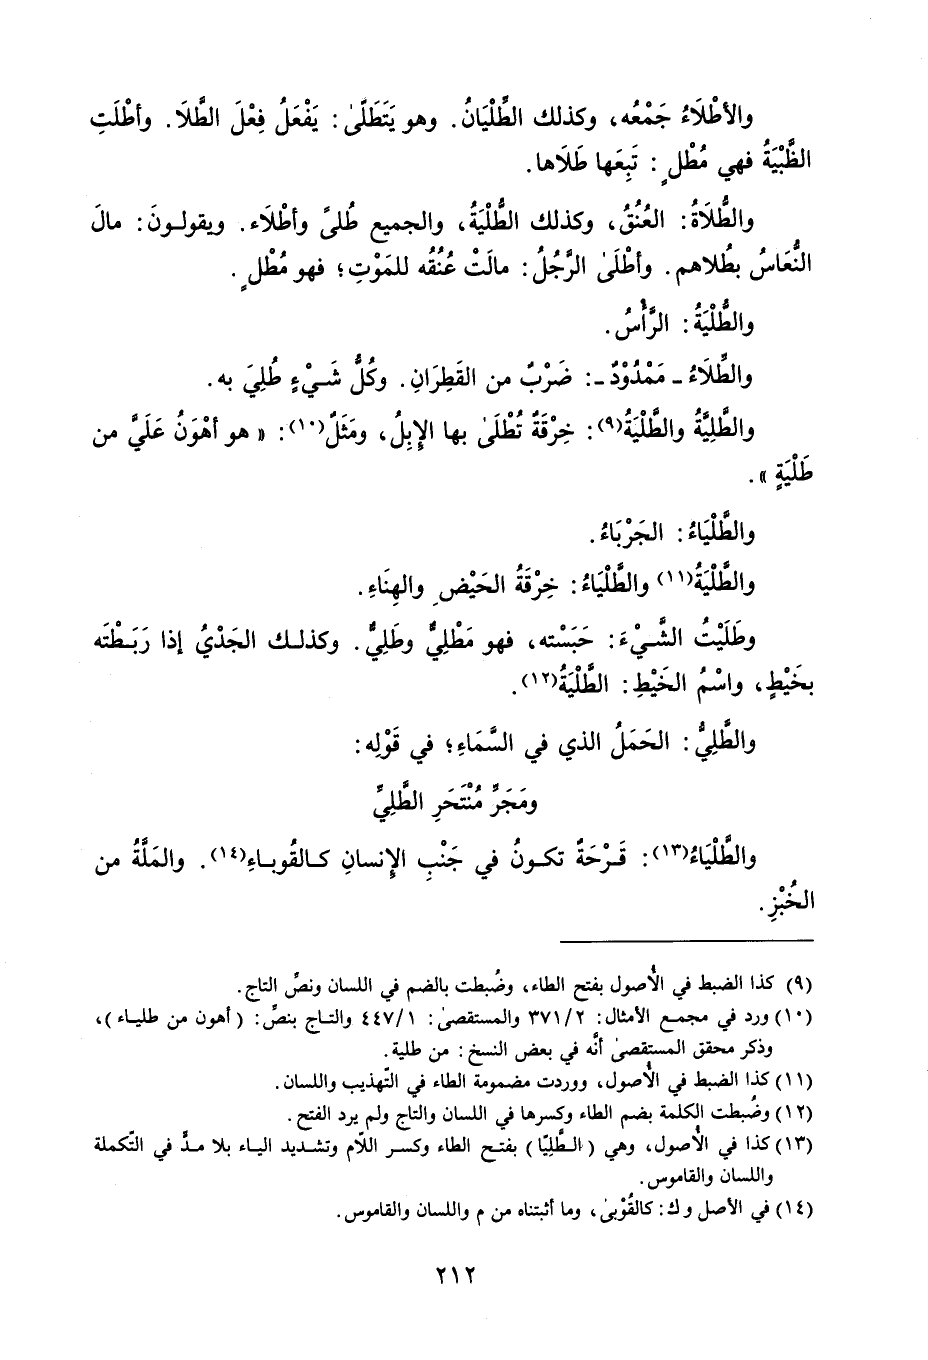 والأطْلَاءُ جَمْعُه، وكذلك الطِّلْيَانُ. وهو يَتَطَلّىٰ: يَفْعَلُ فِعْلَ الطَّلَا. وأطْلَتِ
الظَّبْيَةُ فهي مُطْلٍ: تَبِعَها طَلَاها.
والطُّلَاةُ: العُنُقُ، وكذلك الطُّلْيَةُ، والجميع طُلىً وأطْلَاء. ويقولون: مالَ
النُّعَاسُ بطُلاهم. وأطْلَىٰ الرَّجُلُ: مالَتْ عُنُقُه للمَوْتِ؛ فهو مُطْلٍ.
والطُّلْيَةُ: الرَّأْسُ.
والطِّلَاءُ ـ مَمْدُوْدٌ ـ: ضَرْبٌ من القَطِرَانِ. وكُلُّ شَيْءٍ طُلِيَ به.
والطَّلِيَّةُ والطَّلْيَةُ(٩): خِرْقَةٌ تُطْلَىٰ بها الإِبِلُ، ومَثَلٌ(١٠): « هو أهْوَنُ عَلَيَّ من
طَلْيَةٍ ».
والطَّلْيَاءُ: الجَرْبَاءُ.
والطَّلْيَةُ(١١) والطَّلْيَاءُ: خِرْقَةُ الحَيْضِ والهِنَاءِ.
وطَلَيْتُ الشَّيْءَ: حَبَسْته، فهو مَطْلِيٌّ وطَلِيٌّ. وكذلك الجَدْيُ إذا رَبَطْتَه
بخَيْطٍ، واسْمُ الخَيْطِ: الطَّلْيَةُ(١٢).
والطَّلِيُّ: الحَمَلُ الذي في السَّمَاءِ؛ في قَوْلِه:
ومَجَرِّ مُنْتَحَرِ الطَّلِيِّ
والطَّلْيَاءُ(١٣): قَرْحَةٌ تكونُ في جَنْبِ الإِنسانِ كالقُوباءِ(١٤). والمَلَّةُ من
الخُبْزِ.
(٩) كذا الضبط في الأُصول بفتح الطاء، وضُبطت بالضم في اللسان ونصِّ التاج.
(١٠) ورد في مجمع الأمثال: ٣٧١/٢ والمستقصىٰ: ٤٤٧/١ والتاج بنصِّ: (أهون من طلياء)،
وذكر محقق المستقصىٰ أنَّه في بعض النسخ: من طلية.
(١١) كذا الضبط في الأُصول، ووردت مضمومة الطاء في التّهذيب واللسان.
(١٢) وضُبطت الكلمة بضم الطاء وكسرها في اللسان والتاج ولم يرد الفتح.
(١٣) كذا في الأُصول، وهي (الطَّلِيّا) بفتح الطاء وكسر اللّام وتشديد الياء بلا مدٍّ في التّكملة
واللسان والقاموس.
(١٤) في الأصل وك: كالقُوْبىٰ، وما أثبتناه من م واللسان والقاموس.
٢١٢